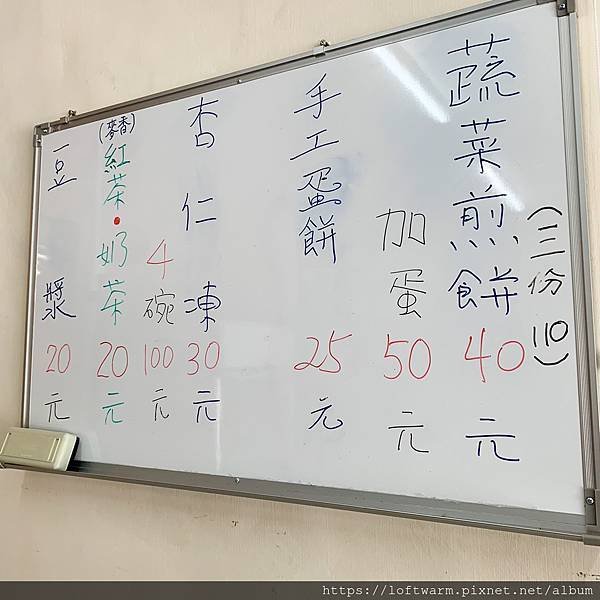 (三份110)
蔬菜煎餅40元
加蛋50元
手工蛋餅25元
杏仁凍30元
4碗100元
(麥香)
紅茶•奶茶20元
豆漿20元
https://loftwarm.pixnet.net/album